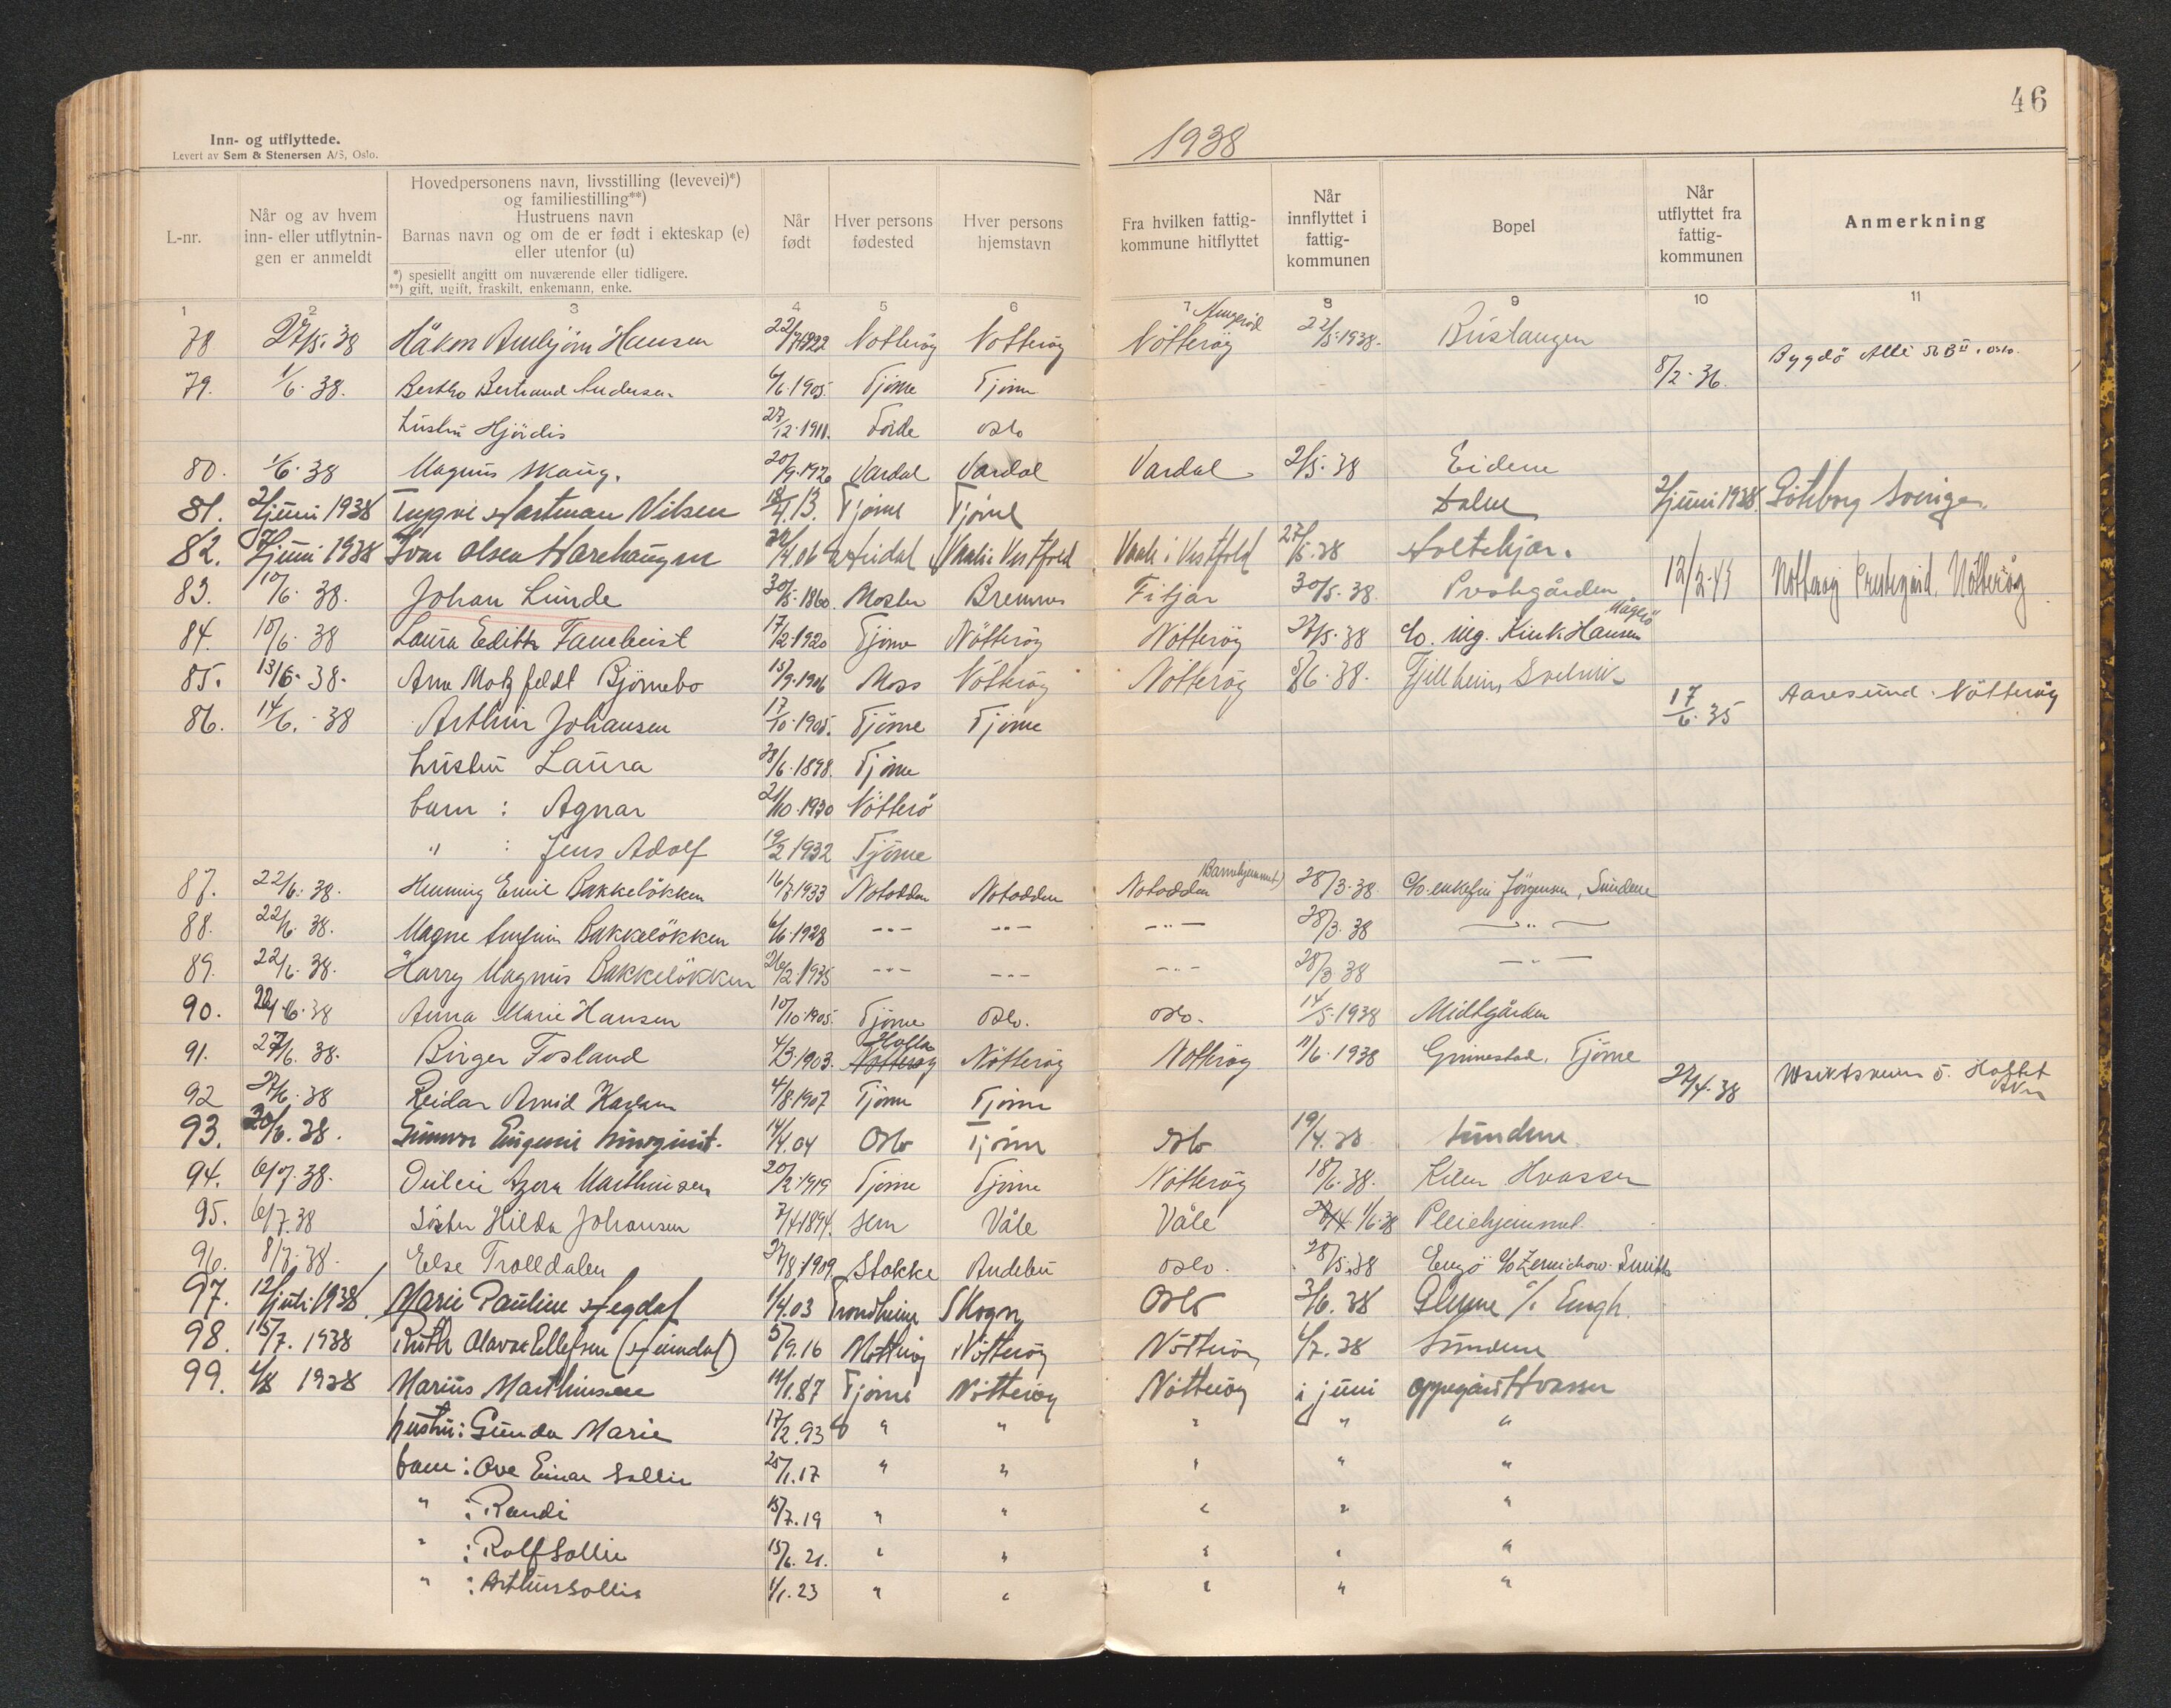 46
Inn- og utflyttede.
Levert av Sem & Stenersen A/S, Oslo.
1938
L-nr.
Når og av hvem inn- eller utflytnin- gen er anmeldt
Hovedpersonens navn, livsstilling (levevei)*) og familiestilling**) Hustruens navn Barnas navn og om de er født i ekteskap (e) eller utenfor (u)
*) spesiellt angitt om nuværende eller tidligere.
**) gift, ugift, fraskilt, enkemann, enke.
Når født
Hver persons fødested
Hver persons hjemstavn
Fra hvilken fattig- kommune hitflyttet
Når innflyttet i fattig- kommunen
Bopel
Når utflyttet fra fattig- kommunen
Anmerkning
1 2 3 4 5 6 7 8 9 10 11
78 27/5. 38 Håkon Hansen 1922 Nötteröy Nötteröy Nötteröy 22/5.1938.
79. 1/6. 38. Bertrand Andersen 6/6.1905. Tjöme Tjöme 8/2.36. Bygdö Alle Oslo.
hustru Hjördis 27/12.1911. Förde Oslo
80. 1/6. 38 Magnus Skaug. 20/9.1926 Vardal Vardal Vardal 2/5.38 Eidene
81. 2/juni 1938 Trygve Hartman Nilsen 18/4.13. Tjöme Tjöme 2/juni 1938. Göteborg Sverige.
82. 7/juni 1938 Ivar Olsen 4.06 Vaale i Vestfold Vaale i Vestfold 27/5.38 Holtekjær.
83. 10/6. 38. Johan Lunde 30/5.1860. Moster Bremnes Fitjar 30/5.38. Prestgården 12/2.45 Nötteröy Prestegård. Nötteröy
84. 10/6. 38 Laura Edith 17/2.1920 Tjöme Nötteröy Nötteröy 27/5.38 c/o. ing. Kink Hansen Mågerö
85. 13/6. 38. Motzfeldt Björnebo 15/9.1906 Moss Nötteröy Nötteröy 8/6.38. Fjellheim,
86. 14/6. 38 Arthur Johansen 17/10.1905. Tjöme Tjöme 17/6.35 Aaresund. Nötteröy
hustru Laura 28/6.1898. Tjöme
barn : Agnar 21/10.1930 Nötterö
" : Jens Adolf 19/2 1932 Tjöme
87. 22/6. 38. Henning Emil Bakkelökken 16/7.1933 Notodden Notodden Notodden (Barnehjemmet) 28/3.38. c/o. enkefru Jörgensen, Sundene
88. 22/6. 38. Magne Bakkelökken 6/6.1928 -"- -"- -"- 28/3.38 -"-
89. 22/6. 38. Harry Magnus Bakkelökken 26/2.1935 -"- -"- -"- 28/3 38 -"-
90. 22/6.38 Anna Marie Hansen 10/10.1905. Tjöme Oslo. Oslo. 14/5.1938 Midtgården
91. 27/6. 38. Birger Tosland 4/3.1903. Nötteröy Nötteröy 11/6.1938 Grimestad. Tjöme
92 27/6.38 Reidar Arvid Karlsen 4/8.1907 Tjöme Tjöme 27/4.38
93. 30/6. 38. Eugenie 14/4.04 Oslo Tjöme Oslo 19/4.38 Sundene.
94. 6/7.38. Marthinsen 20/2.1919 Tjöme Tjöme Nötteröy 18/6.38. Kilen Hvasser
95. 6/7.38 Söster Hilda Johansen 1894. Sem Våle Våle 1/6.38 Pleiehjemmet.
96. 8/7.38. Else Trolldalen 27/8.1909. Stokke Andebu Oslo. 28/5.38 Engö c/o Zernichow-Smith
97. 12/juli 1938. Marie Pauline Hegdal 1/4.03 Trondheim Skogn Oslo 3/6.38 c/o Eugh.
98. 15/7. 1938 Ruth Ellefsen 5/9.16 Nötteröy Nötteröy Nötteröy 1/7.38 Sundene
99. 4/8 1938 Marius Marthinsen 14/1.87 Tjöme Nötteröy Nötteröy i juni Oppegård Hvasser
hustru: Gunda Marie 17/2.93 " " " " "
barn : Ove Einar Sollie 25/1.17 " " " " "
" : Randi 15/7.19 " " " " "
" : Rolf Sollie 15/6.21. " " " " "
" : Arthur Sollie 4/1.23 " " " " "